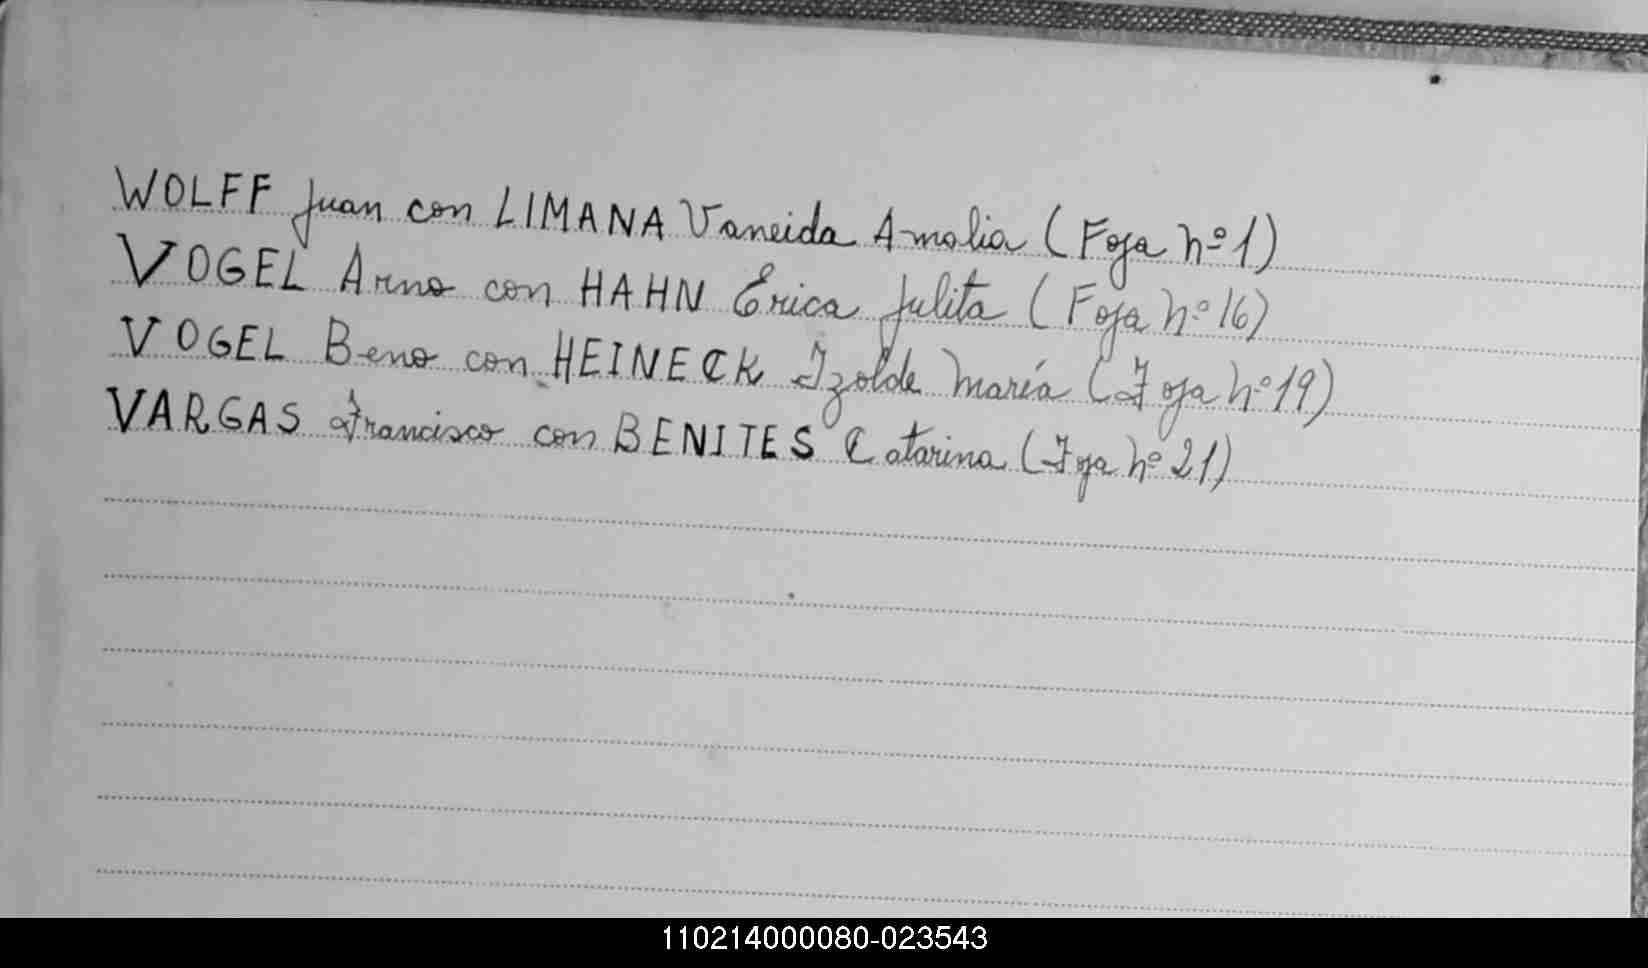 WOLFF Juan con LIMANA Vaneida Amalia (Foja nº 1)
VOGEL Arno con HAHN Erica Julita (Foja nº 16)
VOGEL Beno con HEINECK Izolde María (Foja nº 19)
VARGAS Francisco con BENITES Catarina (Foja nº 21)
110214000080-023543